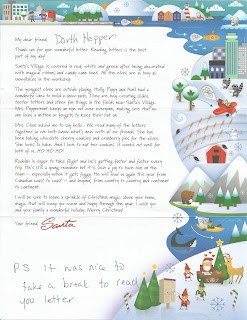 My dear friend, Darth Hopper
Thank you for your wonderful letter. Reading letters is the best
part of my day!
Santa's Village is covered in red, white and green after being decorated
with magical ribbons and candy cane bows. All the elves are as busy as
snowflakes in the wintertime.
The youngest elves are outside playing. Holly, Poppy and Noel had a
wonderful idea to build a snow park. They are busy creating slides,
teeter totters and other fun things in the fields near Santa's Village.
Mrs. Peppermint keeps an eye out over everyone, making sure that no
one loses a mitten or forgets to keep their hat on.
Mrs. Claus asked me to say hello. We read many of the letters
together so we both know what's new with all our friends. She has
been baking chocolate cherry cookies and cranberry pies for the elves.
She loves to bake. And I love to eat her cookies. It works out well for
both of us, HO HO HO!
Rudolph is eager to take flight and he's getting faster and faster every
trip. He's still a young reindeer but it is such a joy to have him on the
team – especially when it gets foggy. He will lead us again this year from
Canadian coast to coast – and beyond, from country to country and continent
to continent.
I will be sure to leave a sprinkle of Christmas magic above your home,
magic that will keep you warm and happy through the year. I wish you
and your family a wonderful holiday. Merry Christmas!
Your friend, Santa
P.S it was nice to
take a break to read
you letter